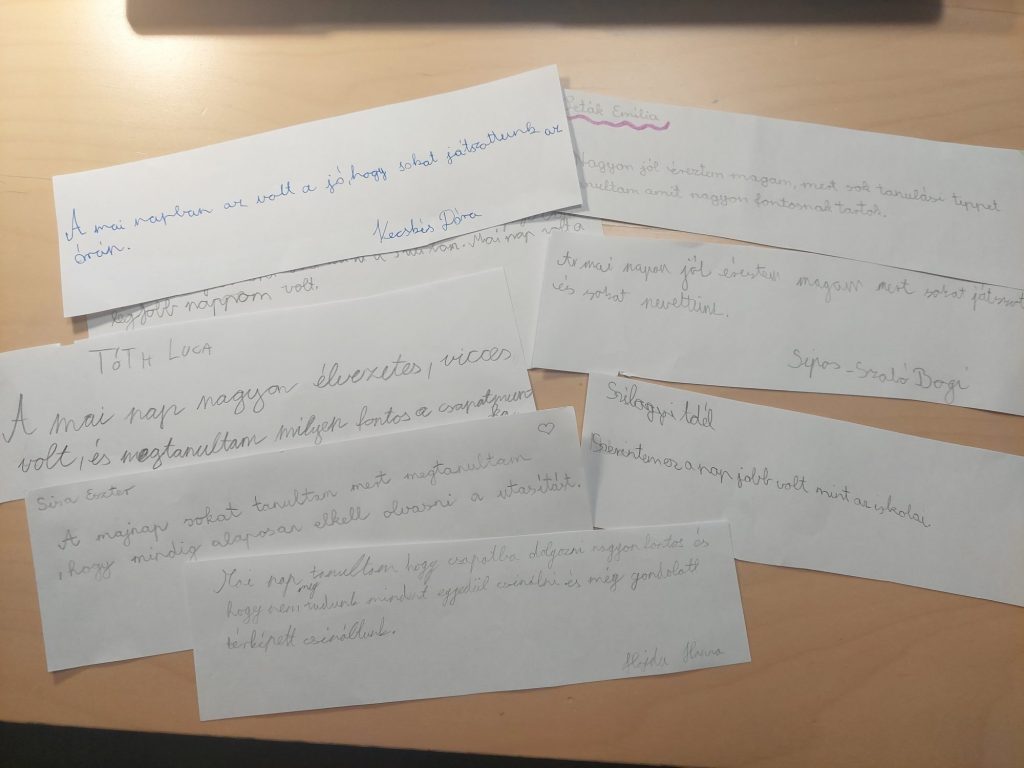 A mai napban az volt a jó, hogy sokat játszottunk az
órán.
Kecskés Dóra
Emília
Nagyon jól éreztem magam, mert sok tanulási tippet
tanultam amit nagyon fontosnak tartok.
Mai nap volt a
legjobb náppom volt.
Az mai napon jól éreztem magam mert sokat játszot
és sokat nevettünk.
Sipos-Szabó Bogi
TÓTH LUCA
A mai nap nagyon élvezetes, vicces
volt, és megtanultam milyen fontos a csapatmun
ka.
Szilágyi Adél
Szerintem ez a nap jobb volt mint az iskolai
Sisa Eszter
A majnap sokat tanultam mert megtanultam
, hogy mindig alaposan elkell olvasni a utasítást.
Mai nap meg tanultam hogy csapatba dolgozni nagyon fontos és
hogy nem tudunk mindent egyedül csinálni és még gondolatt
térképett csináltunk.
Hanna